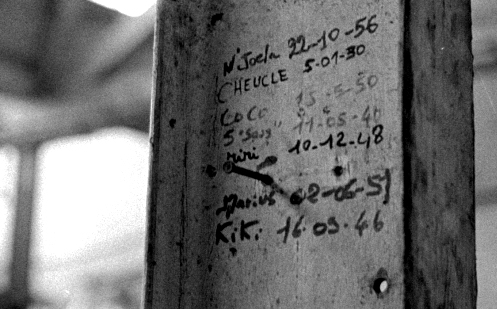 N'Joela 22-10-56
CHEUCLE 5-01-30
COCO 15-5-50
5 Sous 11-05-40
mini 10-12-48
Marius 02-06-51
KiKi 16.09.46